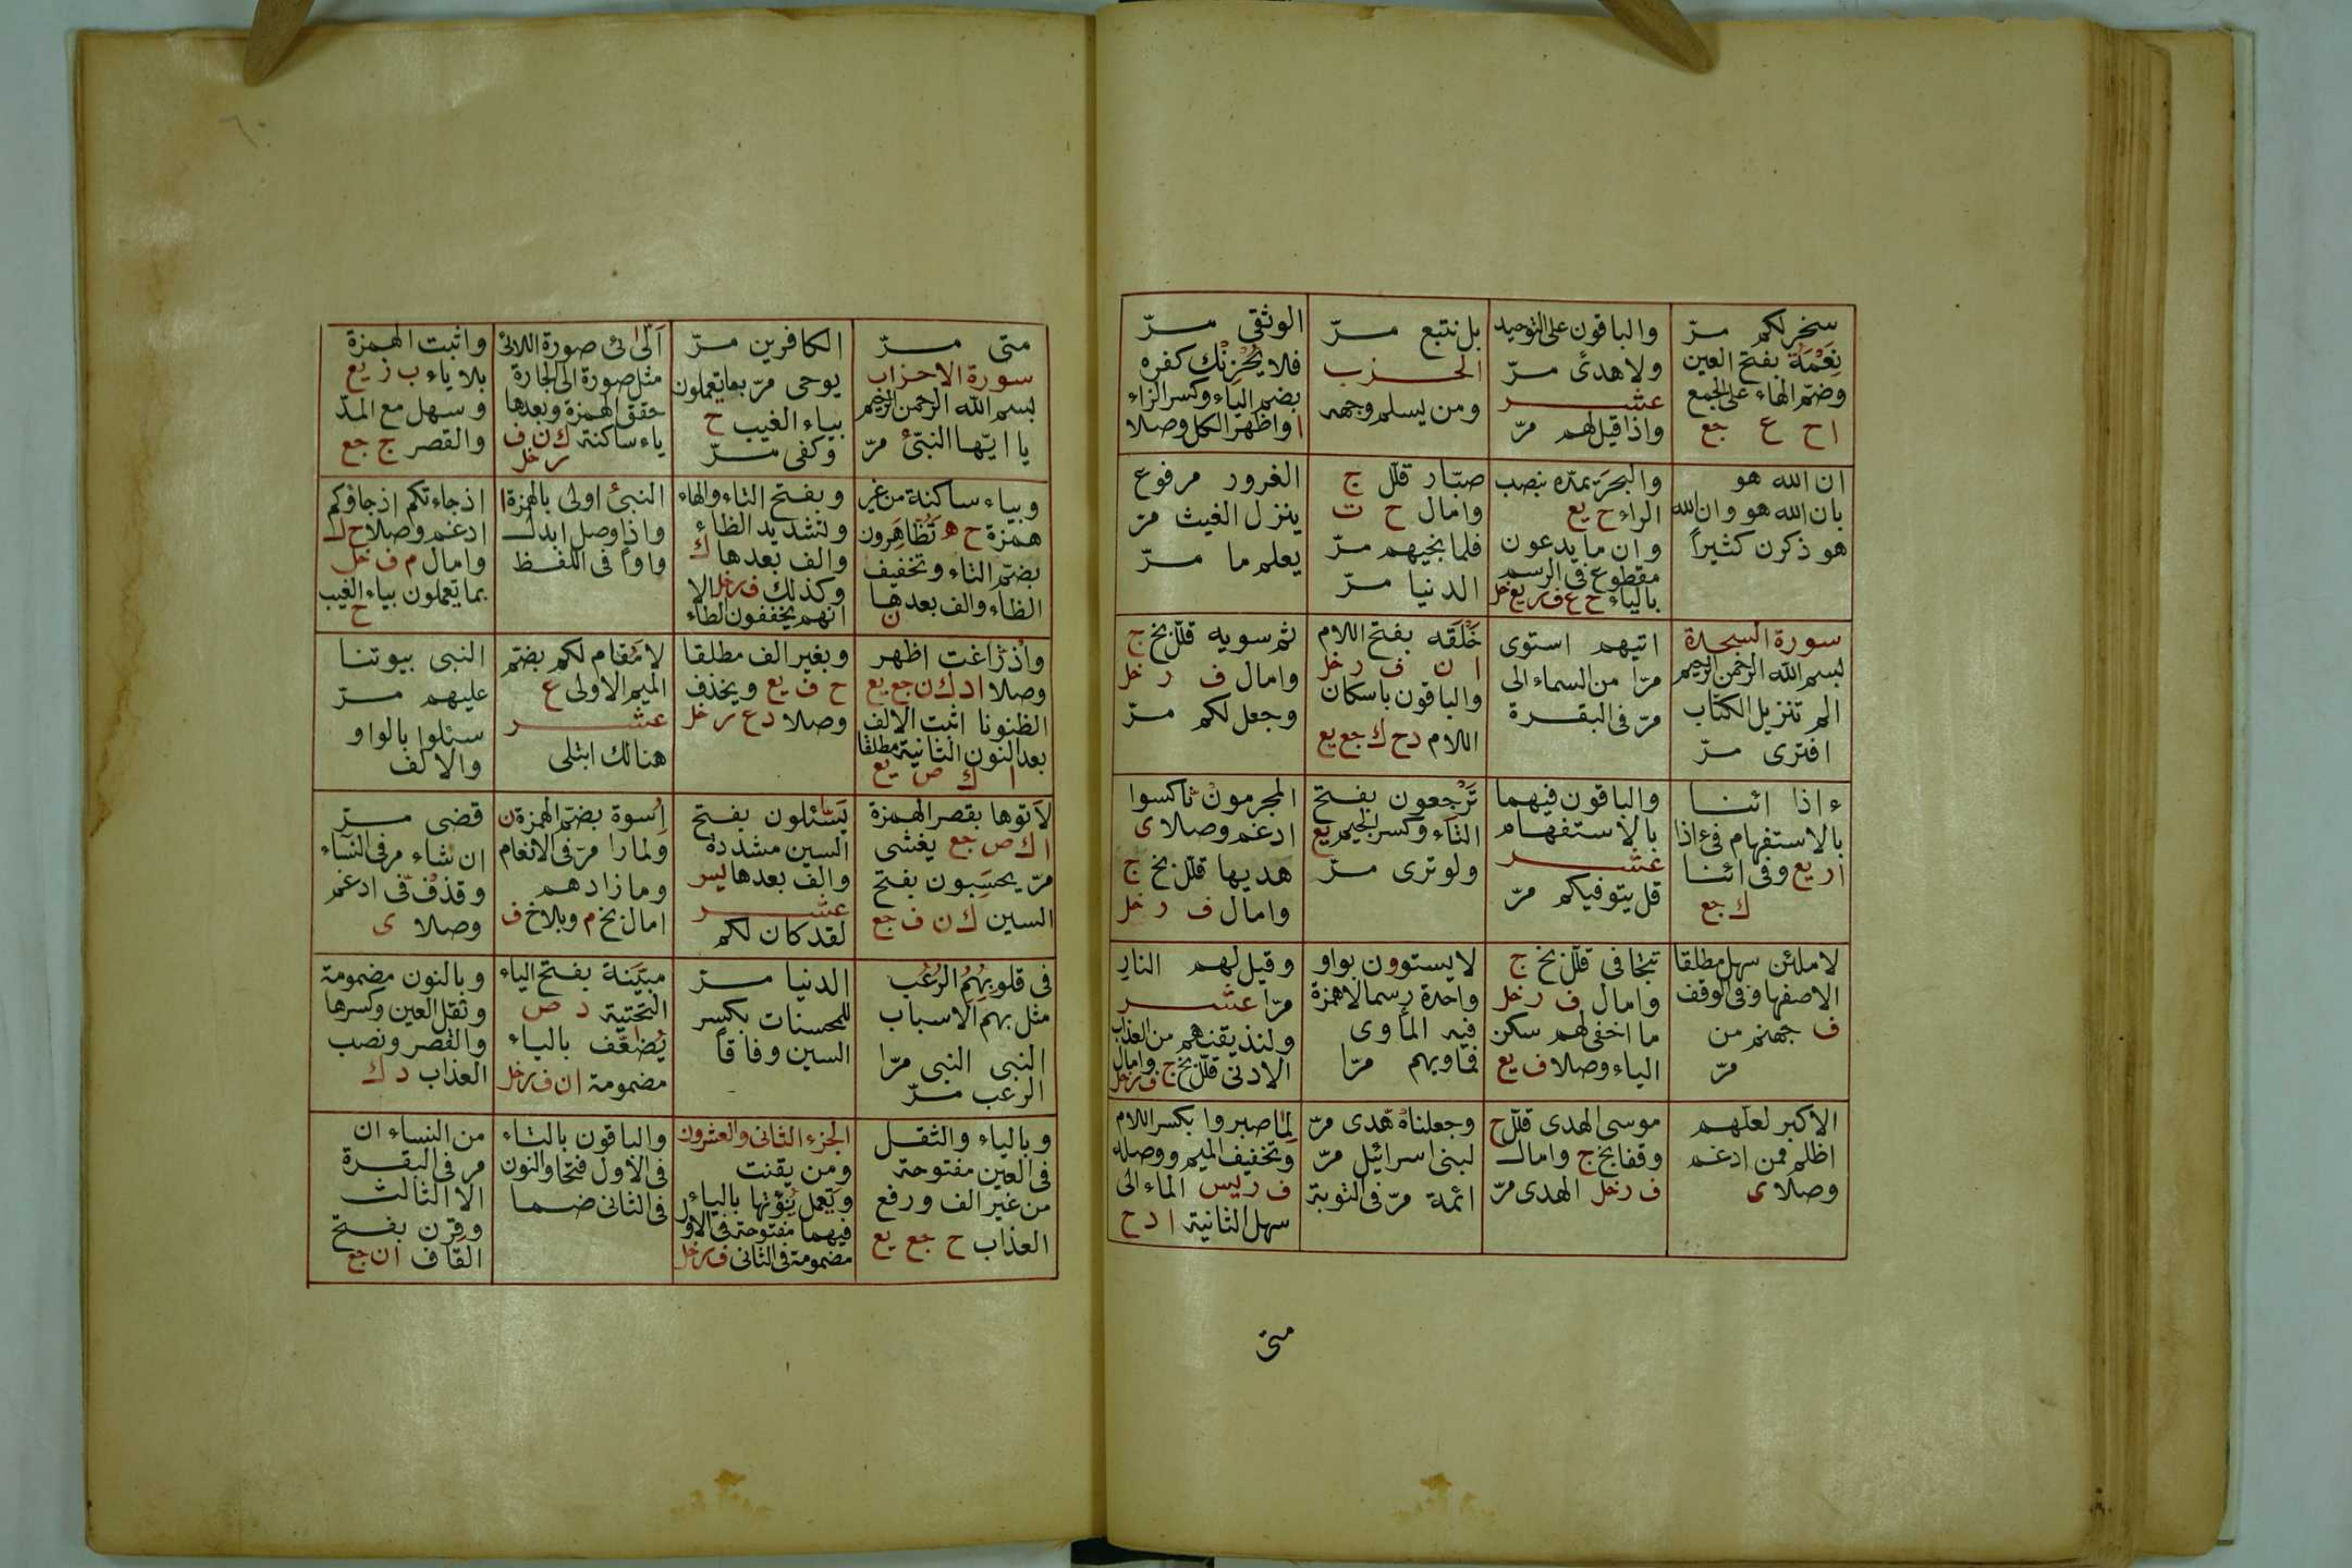 سخر لكم مرّ
نِعَمَهُ بفتح العين
وضمّ الهاء على الجمع
ا ح ع جع
والباقون على التوحيد
ولا هدىً مرّ
عشر
واذا قيل لهم مرّ
بل نتبع مرّ
الحزب
ومن يسلم وجهه
الوثقى مرّ
فلا يُحْزِنْك كفره
بضم الياء وكسر الزاء
ا واظهر الكل وصلا
ان الله هو
بان الله هو وان الله
هو ذكرن كثيراً
والبحرَ يمدّه بنصب
الراء ح يع
وان ما يدعون
مقطوع فى الرسم
بالياء ح ع ف ر يع خل
صبّار قلّل ج
وامال ح ت
فلما نجيهم مرّ
الدنيا مرّ
الغرور مرفوع
ينزل الغيث مرّ
يعلم ما مرّ
سورة السجدة
بسم الله الرحمن الرحيم
الم تنزيل الكتاب
افترى مرّ
اتيهم استوى
مرّا من السماء الى
مرّ فى البقرة
خَلَقه بفتح اللام
ا ن ف ر خل
والباقون باسكان
اللام د ح ك جع يع
ثم سويه قلّل بخ ج
وامال ف ر خل
وجعل لكم مرّ
ءاذا ائنا
بالاستفهام فى ءاذا
ا ر يع وفى ائنا
ك جع
والباقون فيهما
بالاستفهام
عشر
قل يتوفيكم مرّ
تَرْجِعون بفتح
التاء وكسر الجيم يع
ولو ترى مرّ
المجرمون ناكسوا
ادغم وصلا ى
هديها قلّل بخ ج
وامال ف ر خل
لاملئن سهل مطلقا
الاصفها وفى الوقف
ف جهنم من
مرّ
تتجافى قلّل بخ ج
وامال ف ر خل
ما اخفى لهم سكن
الياء وصلا ف يع
لا يستوون بواو
واحدة رسما لا همزة
فيه المأوى
فمأويهم مرّا
وقيل لهم النار
مرّا عشر
ولنذيقنهم من العذاب
الادنى قلّل بخ ج وامال
ف ر خل
الاكبر لعلهم
اظلم ممن ادغم
وصلا ى
موسى الهدى قلّل ح
وقفا بخ ج وامال
ف ر خل الهدى مرّ
وجعلناه هدى مرّ
لبنى اسرائيل مرّ
ائمة مرّ فى التوبة
لِمَا صبروا بكسر اللام
وتخفيف الميم ووصله
ف ر يس الماء الى
سهل الثانية ا د ح
متى
متى مرّ
سورة الاحزاب
بسم الله الرحمن الرحيم
يا ايّها النبىّ مرّ
الكافرين مرّ
يوحى مرّ بما يعملون
بياء الغيب ح
وكفى مرّ
الّٰئى صورة اللائى
مثل صورة الى الجارة
حقق الهمزة وبعدها
ياء ساكنة ك ن ف
ر خل
واثبت الهمزة
بلا ياء ب ز يع
وسهل مع المدّ
والقصر ج جع
وبياء ساكنة من غير
همزة ح ه تُظَاهِرون
بضم التاء وتخفيف
الظاء والف بعدها
ن
وبفتح التاء والهاء
وتشديد الظاء
والف بعدها ك
وكذلك ف ر خل الا
انهم يخففون الظاء
النبئ اولى بالهمزة ا
واذا وصل ابدل
واواً فى اللفظ
اذ جاءتكم اذ جاؤكم
ادغم وصلا ح ل
وامال م ف خل
بما يعملون بياء الغيب
ح
واذ زاغت اظهر
وصلا ا د ك ن جع يع
الظنونا اثبت الالف
بعد النون الثانية مطلقا
ا ك ص يع
وبغير الف مطلقا
ح ف يع ويحذف
وصلا د ع ر خل
لا مُقام لكم بضم
الميم الاولى ع
عشر
هنالك ابتلى
النبى بيوتنا
عليهم مرّ
سئلوا بالواو
والالف
لأتوها بقصر الهمزة
ا ك ص جع يغشى
مرّ يحسَبون بفتح
السين ك ن ف جع
يَسّئلون بفتح
السين مشددة
والف بعدها يس
عشر
لقد كان لكم
اُسوة بضم الهمزة ن
ولما را مرّ فى الانعام
وما زادهم
امال بخ م وبلا خ ف
قضى مرّ
ان شاء مر فى النساء
وقذف فى ادغم
وصلا ى
فى قلوبهم الرعب
مثل بهم الاسباب
النبى النبى مرّا
الرعب مرّ
الدنيا مرّ
للمحسنات بكسر
السين وفاقاً
مبيَّنة بفتح الياء
التحتية د ص
يُضعَّف بالياء
مضمومة ا ن ف ر خل
وبالنون مضمومة
وثقل العين وكسرها
والقصر ونصب
العذاب د ك
وبالياء والثقل
فى العين مفتوحة
من غير الف ورفع
العذاب ح جع يع
الجزء الثانى والعشرون
ومن يقنت
ويعمل يُؤتها بالياء
فيهما مفتوحة فى الاول
مضمومة فى الثانى ف ر خل
والباقون بالتاء
فى الاول فتحا والنون
فى الثانى ضما
من النساء ان
مر فى البقرة
الا الثالث
وقرن بفتح
القاف ا ن جع